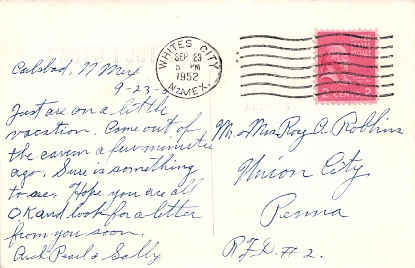 WHITES CITY
SEP 23
5 PM
1952
N. MEX.
Carlsbad, N Mex
9-23-5
Just are on a little
vacation. Come out of
the cavern a few minutes
ago. Sure is something
to see. Hope you are all
O.K and look for a letter
from you soon.
Arch Pearl & Sally
Mr. & Mrs Roy A. Robbins
Union City
Penna
R.F.D. #2.